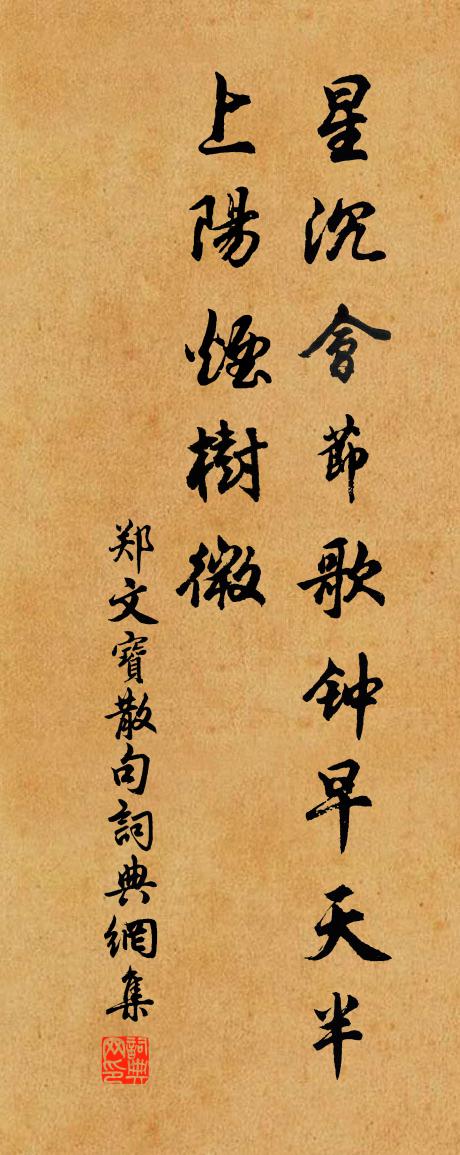 星沉會節歌钟早天半
上陽煙樹微
郑文寶散句詞典網集
詞典
网印